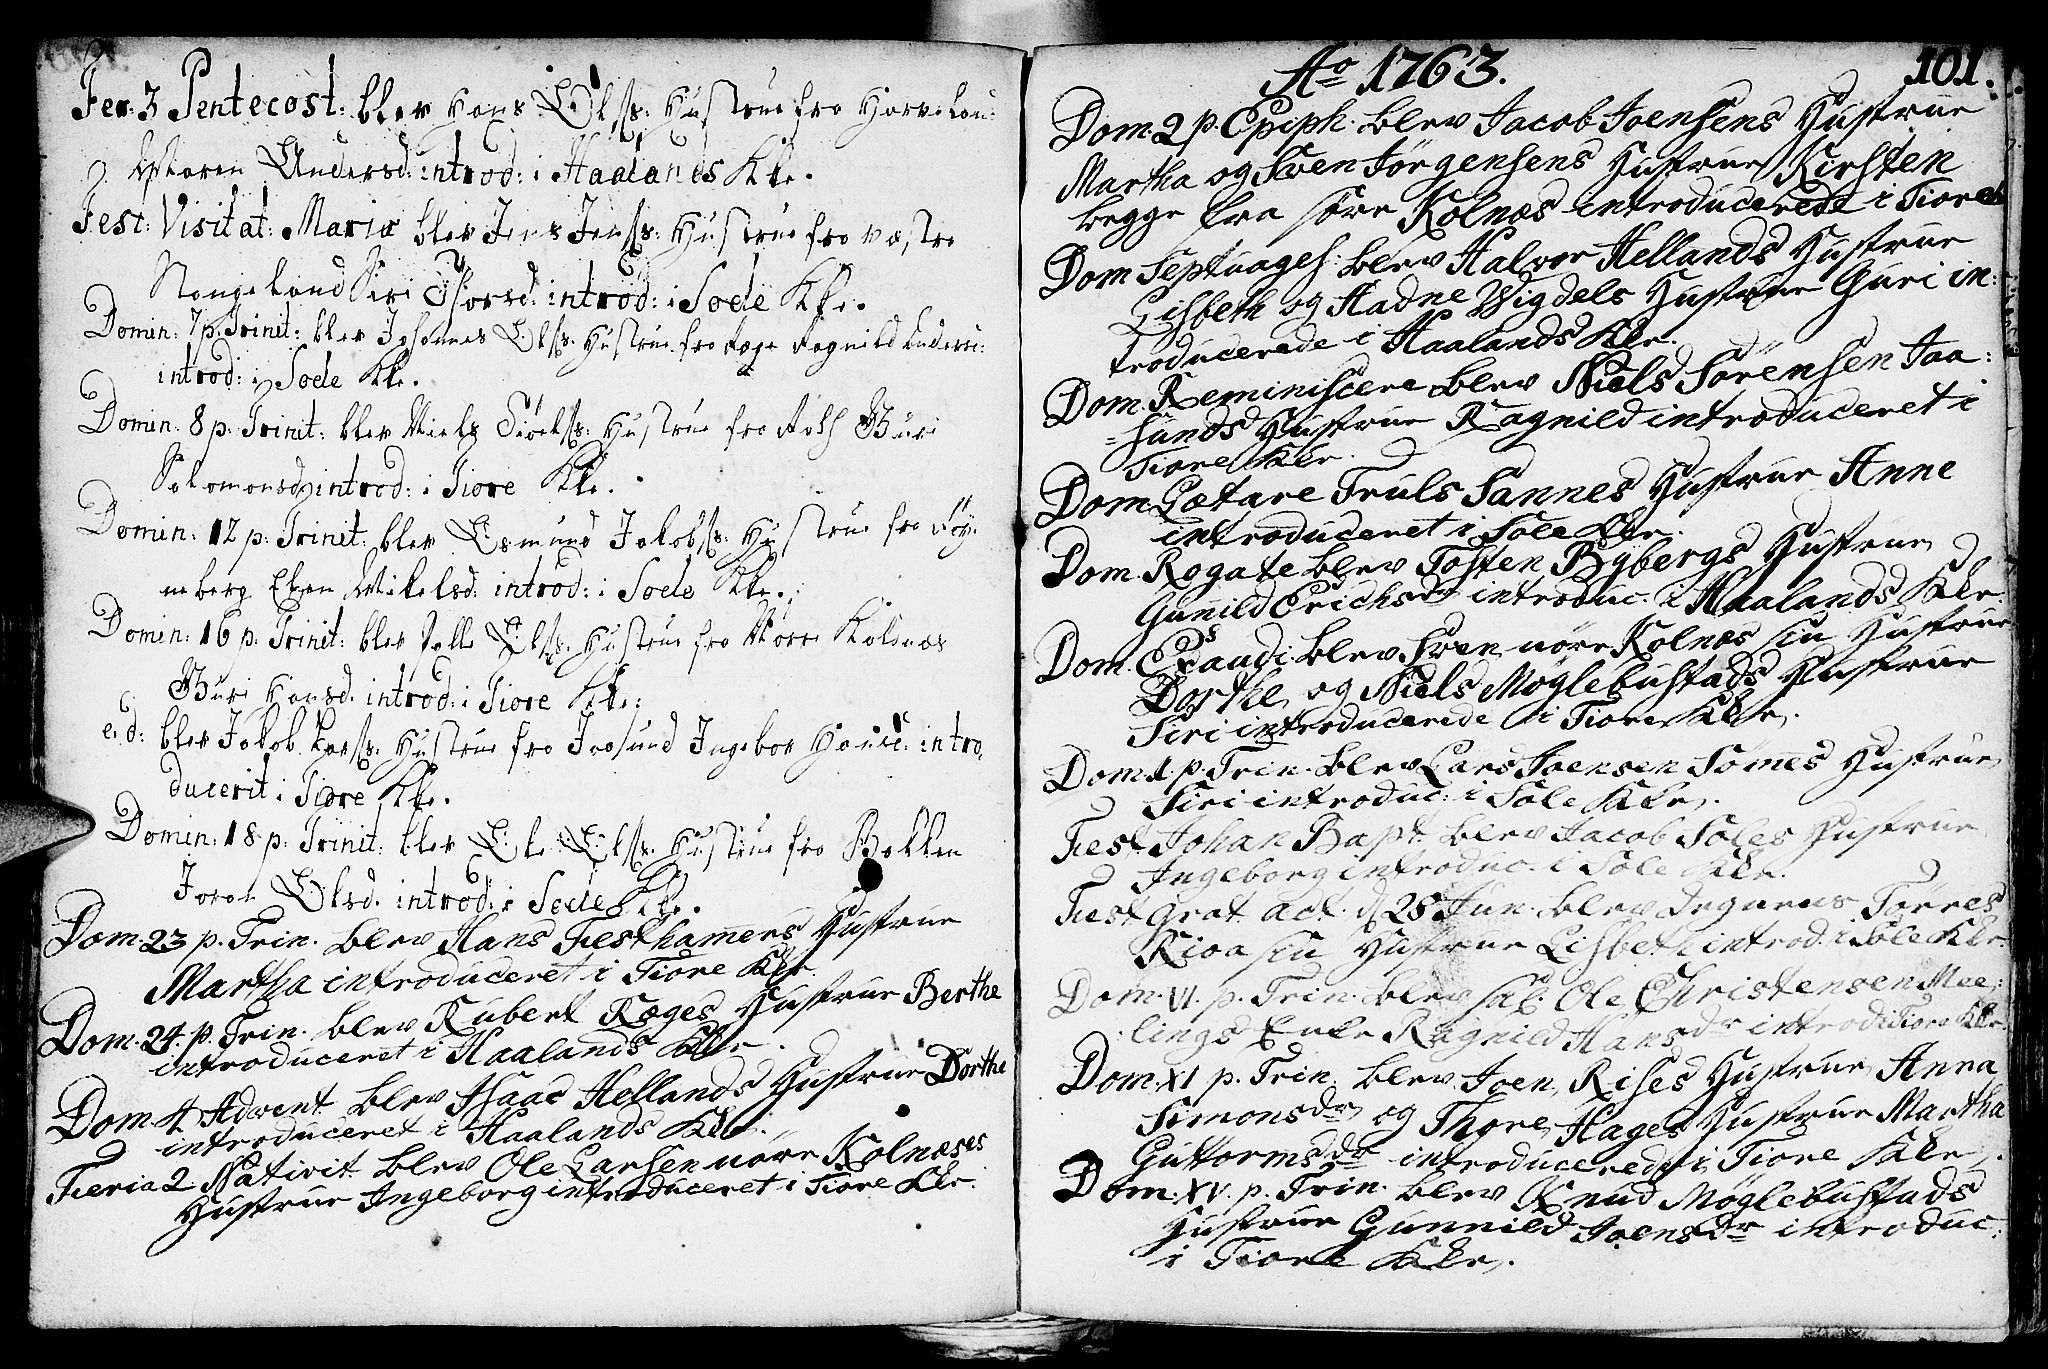 Fer: 3 Pentecost: blev Hans Ols: Hustrue fra Harveland
Karen Andersd: introd: i Haalands Kke.
Fest: Visitat: Mariæ blev Jens Jens: Hustrue fra væstre
Stangeland Siri Thorsd: introd: i Soele Kke.
Domin: 7 p. Trinit: blev Johannes Ols: Hustrue fra Ræge Ragnild Anders:
introd: i Soele Kke.
Domin: 8 p. Trinit: blev Niels Hustrue fra Guri
Salomonsd introd: i Tiore Kke.
Domin: 12 p: Trinit: blev Osmund Jakobs: Hustrue fra Røy
neberg Elen Mikelsd: introd: i Soele Kke.
Domin: 16 p: Trinit: blev Ols: Hustrue fra Nørre Kolnæs
Guri Hansd. introd: i Tiore Kke:
e. d: blev Jakob Lars: Hustrue fra Jaasund Ingebor introd
ducerit i Tiore Kke.
Domin: 18 p: Trinit: blev Ole Ols: Hustrue fra Bakken
Joren Olsd. introd: i Soele Kke.
Dom. 23 p. Trin. blev Hans Fiesthamers Hustrue
Martha introduceret i Tiore Kkr.
Dom. 24. p. Trin. blev Rubert Ræges Hustrue Berthe
introduceret i Haalands Kkr.
Dom. 4 Advent blev Isaac Hellands Hustrue Dorthe
introduceret i Haalands Kkr.
Fieria 2 Nativit. blev Ole Larsen nöre Kolnæses
Hustrue Ingeborg introduceret i Tiore Kkr.
Ao 1763.
101.
Dom. 2 p. Epiph. blev Jacob Joensens Hustrue
Martha og Sven Jörgensens Hustrue Kirsten
begge fra söre Kolnæs introducerede i Tiore
Dom Septuages: blev Halvor Hellands Hustrue
Lisbeth og Aadne Wigdels Hustrue Guri in:
troducerede i Haalands Kkr.
Dom. Reminiscere blev Niels Sörensen Jaa:
sunds Hustrue Ragnild introduceret i
Tiore Kkr.
Dom. Lætare Truls Sannes Hustrue Anne
introduceret i Sole Kkr.
Dom. Rogate blev Tosten Bybergs Hustrue
Gunild Erichsdr introduc. i Haalands Kkr.
Dom. Exaudi blev Sven nöre Kolnæs sin Hustrue
Dorthe og Niels Möglebustads Hustrue
Siri introducerede i Tiore Kkr.
Dom. 1. p. Trin. blev Lars Joensen Sömes Hustrue
Siri introduc: i Sole Kkr.
Fest. Johan Bapt. blev Jacob Soles Hustrue
Ingeborg introduc. i Sole Kkr.
Fest Grat. act. d 28 Jun. blev Törres
Kioa sin Hustrue Lisbeth introd. i Sole Kkr.
Dom. VI. p. Trin. blev sal. Ole Christensen Mee:
lings Enke Ragnild Hansdr introd. i Tiore Kkr.
Dom. XI p. Trin. blev Joen Rises Hustrue Anna
Simonsdr og Thore Hages Hustrue Martha
Guttormsdr introducerede i Tiore Kkr.
Dom. XV. p. Trin. blev Knud Möglebustads
Hustrue Gunnild Joensdr introduc.
i Tiore Kkr.